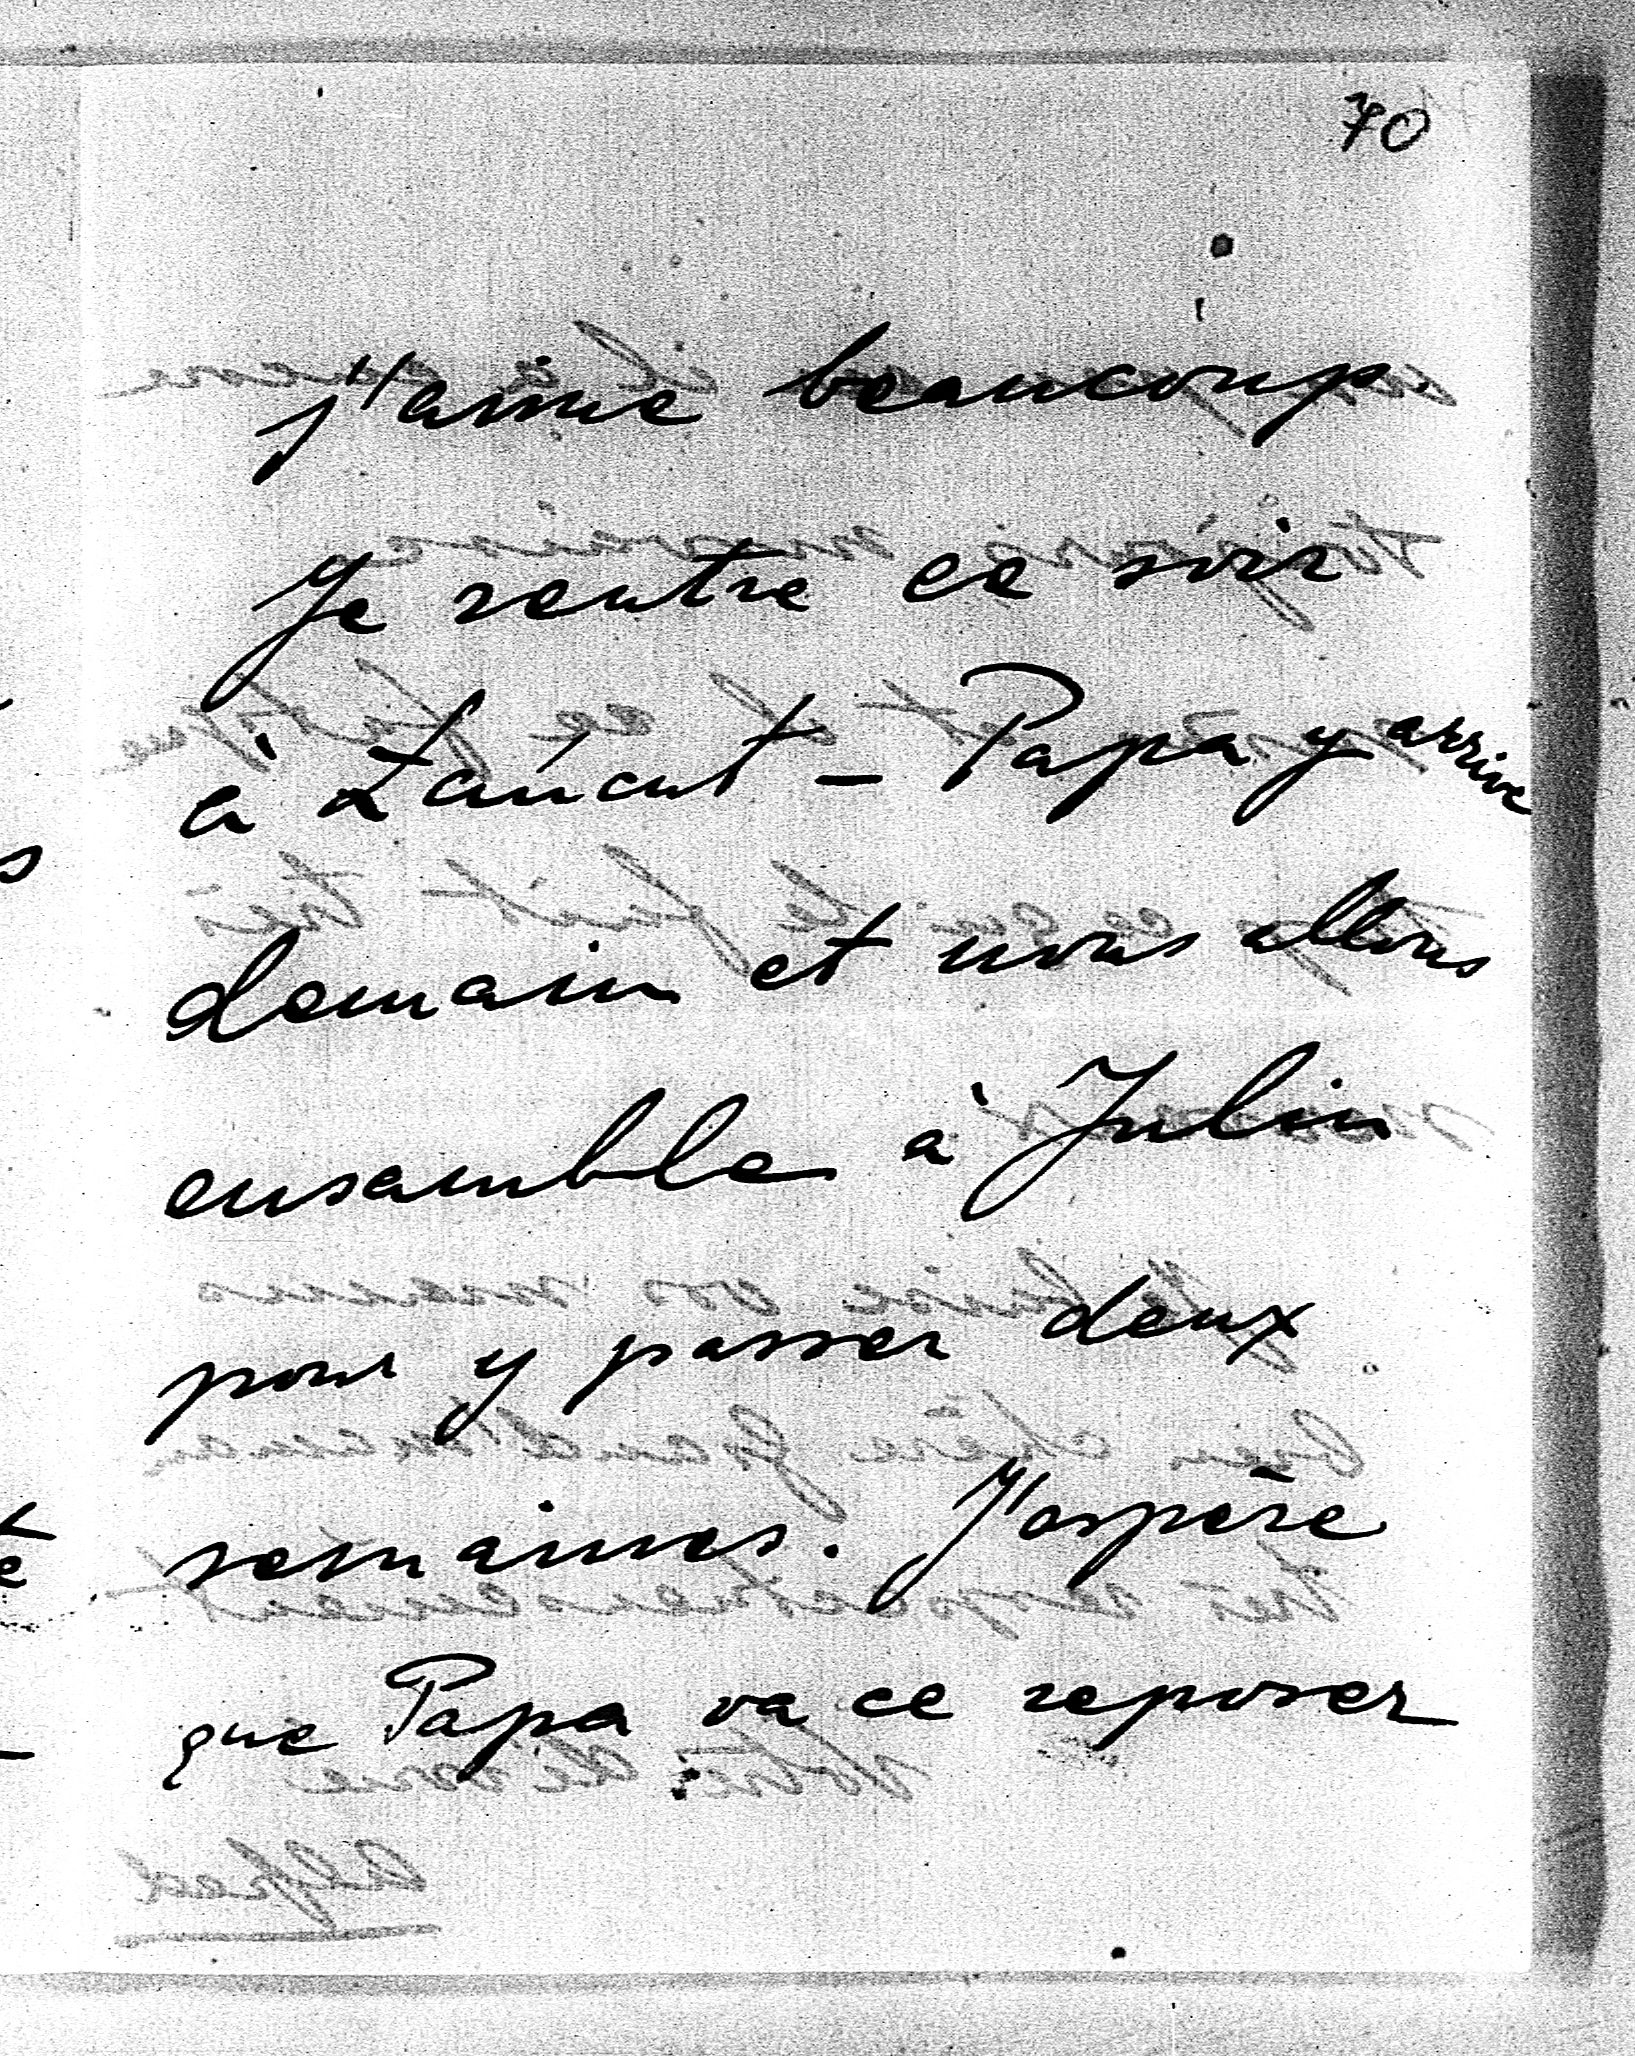 70
j'aime beaucoup
Je rentre ce soir
à Łańcut – Papa y arrive
demain et nous allons
ensemble à Julin
pour y passer deux
semaines. J'espère
que Papa va ce reposer